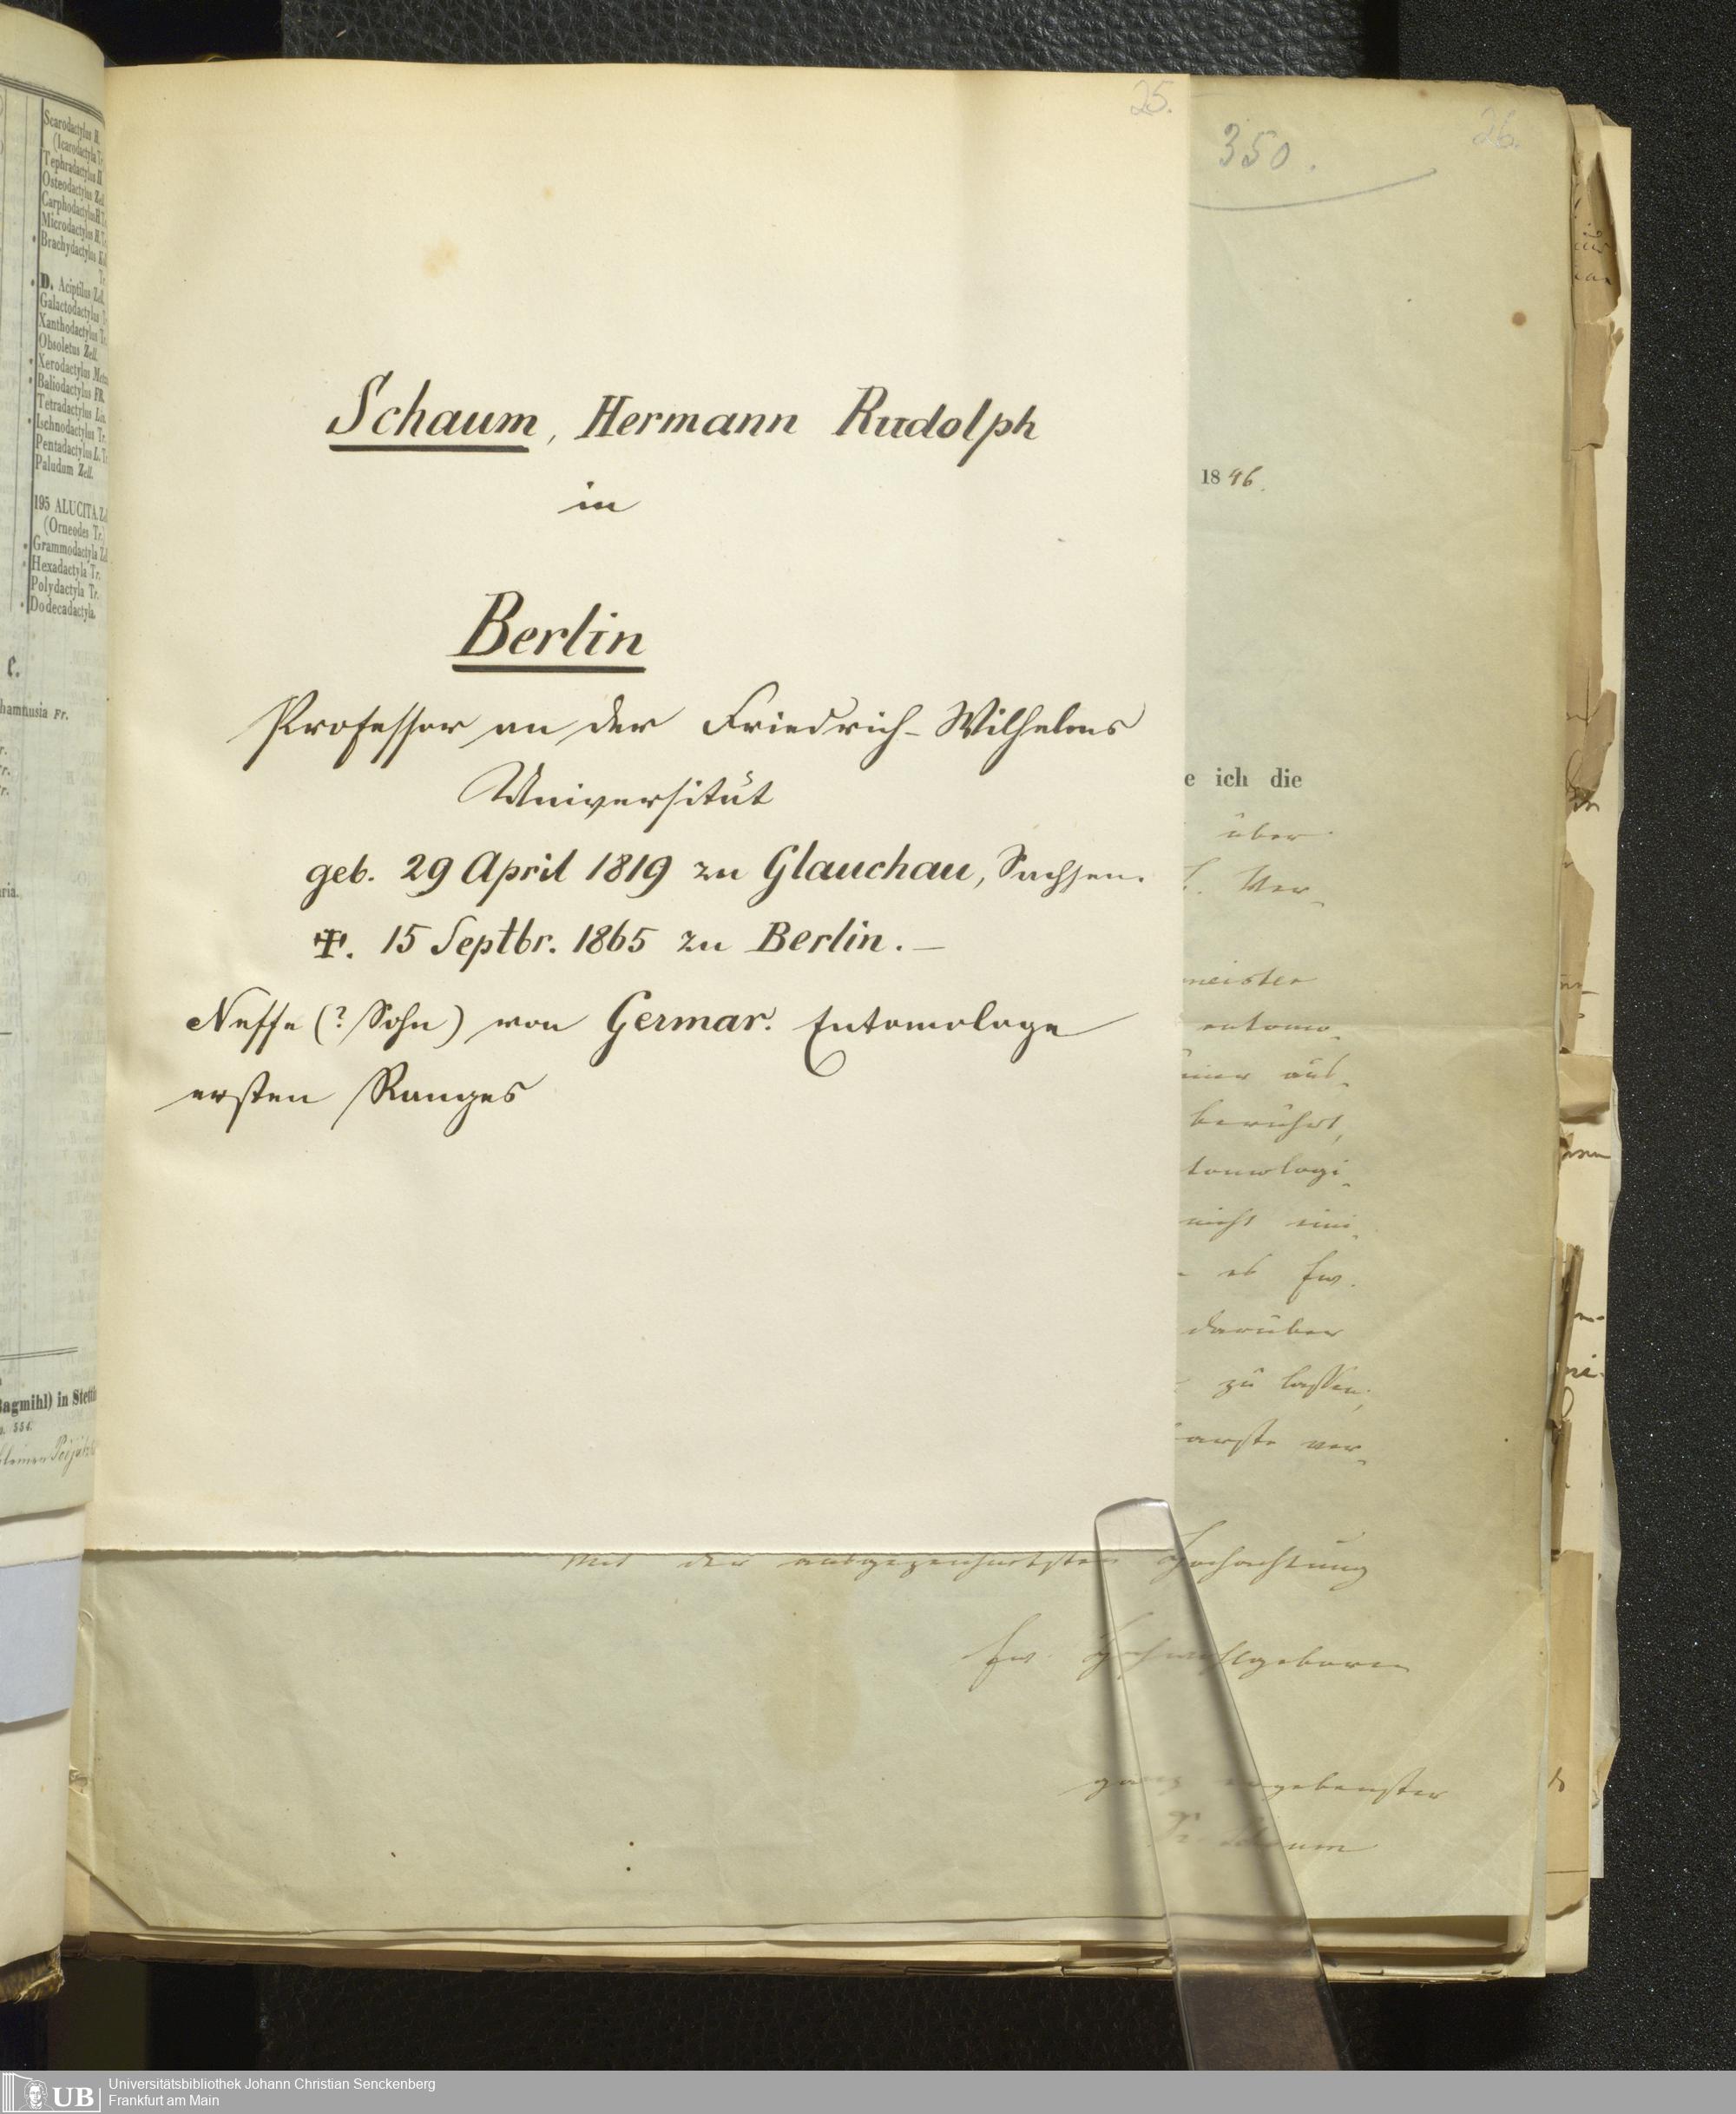 Scarodactylus H.
(Icarodactyla Tr.
Tephradactylus H
Osteodactylus Zel.
Carphodactylus H.
Microdactylus H. Tr.
Brachydactylus Kol.
Tr.
D. Aciptilus Zel.
Galactodactylus
Xanthodactylus Tr.
Obsoletus Zell.
Xerodactylus
Baliodactylus FR.
Tetradactylus Lin.
Ischnodactylus Tr.
Pentadactylus L. T.
Paludum Zell.
195 ALUCITA. Z
(Orneodes Tr.)
Grammodactyla Z
Hexadactyla Tr.
Polydactyla Tr.
Dodecadactyla.
C.
hamnusia Fr.
ria
Bagmihl) in Stettin
25.
Schaum, Hermann Rudolph
in
Berlin
Professor an der Friedrich-Wilhelms
Universität
geb. 29 April 1819 zu Glauchau, Sachsen.
✠. 15 Septbr. 1865 zu Berlin. —
Neffe (? Sohn) von Germar. Entomologe
ersten Ranges
350.
26.
1846.
e ich die
über
Ver-
meister
entomo-
aus-
berührt,
tomologi-
nicht eini-
es Ew.
darüber
zu lassen,
arste ver-
Mit der ausgezeichnetsten Hochachtung
Ew. Hochwohlgeboren
ganz ergebenster
Schaum
UB
Universitätsbibliothek Johann Christian Senckenberg
Frankfurt am Main